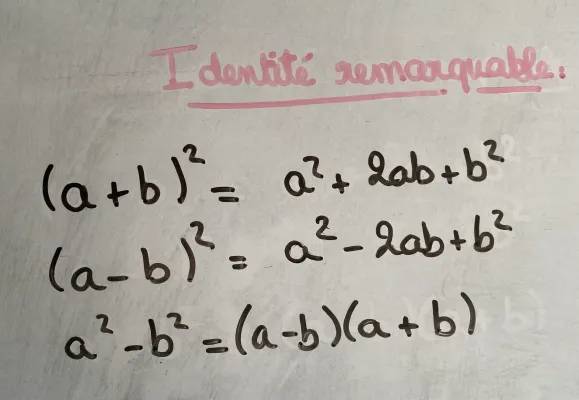 Identité remarquable.
(a+b)² = a² + 2ab + b²
(a-b)² = a² - 2ab + b²
a² - b² = (a-b)(a+b)